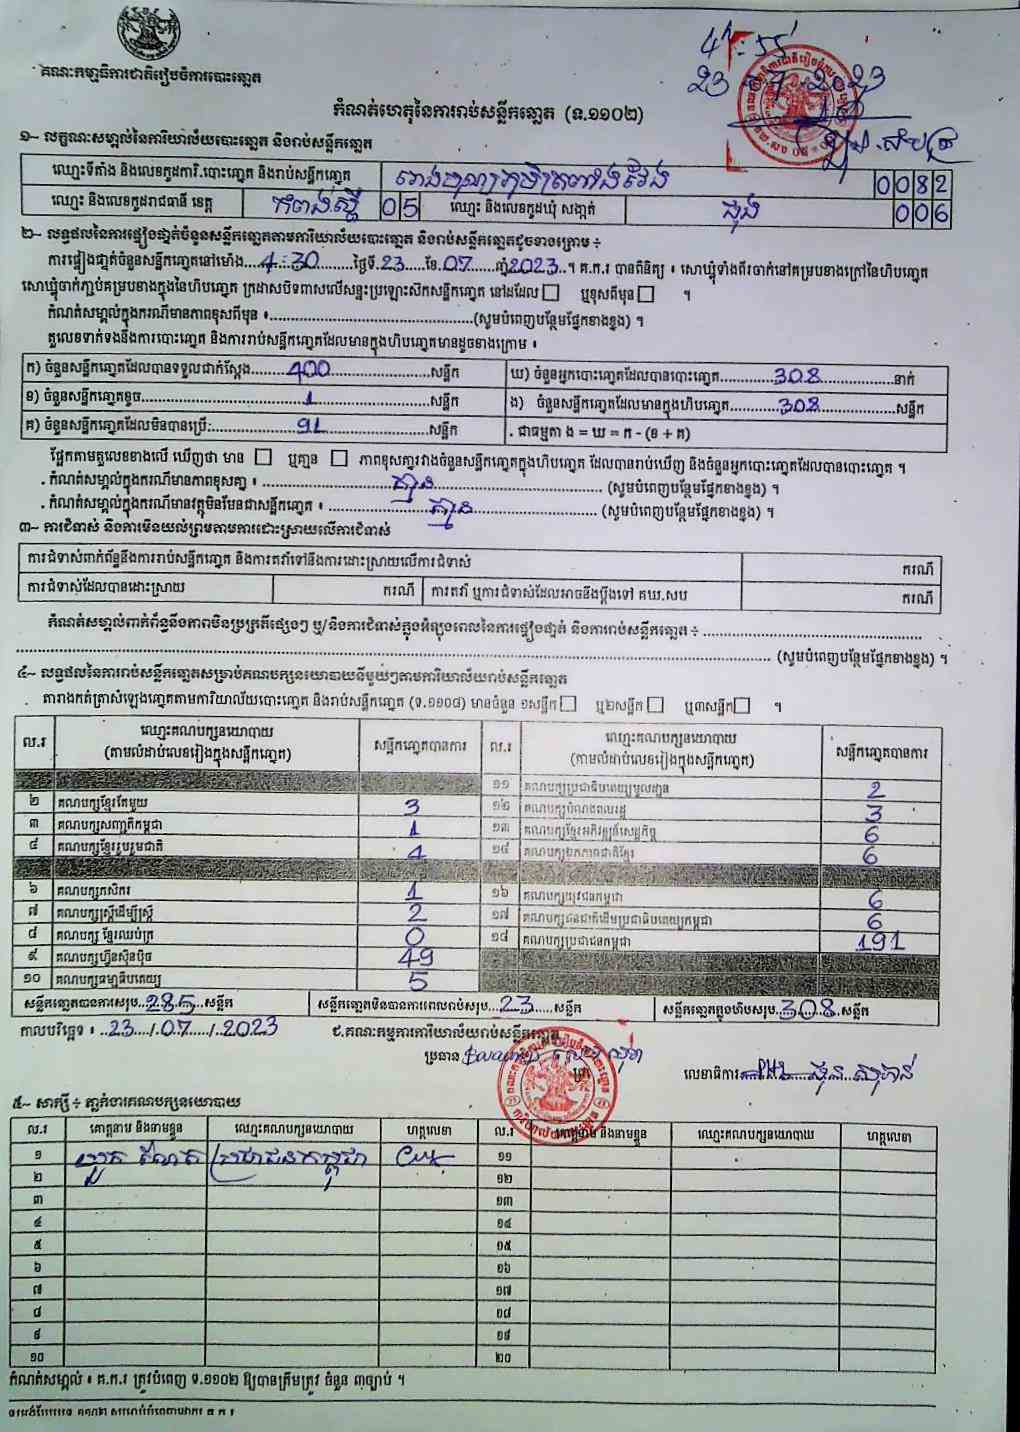 គណៈកម្មាធិការជាតិរៀបចំការបោះឆ្នោត
23 7 2023
កំណត់ហេតុនៃការរាប់សន្លឹកឆ្នោត (ទ.១១០២)
១~ លក្ខណៈសម្គាល់នៃការិយាល័យបោះឆ្នោត និងរាប់សន្លឹកឆ្នោត
ឈ្មោះទីតាំង និងលេខកូដការិ.បោះឆ្នោត និងរាប់សន្លឹកឆ្នោត 0082
ឈ្មោះ និងលេខកូដរាជធានី ខេត្ត កំពង់ស្ពឺ 05 ឈ្មោះ និងលេខកូដឃុំ សង្កាត់ 006
២~ លទ្ធផលនៃការផ្ទៀងផ្ទាត់ចំនួនសន្លឹកឆ្នោតតាមការិយាល័យបោះឆ្នោត និងរាប់សន្លឹកឆ្នោតដូចខាងក្រោម ÷
ការផ្ទៀងផ្ទាត់ចំនួនសន្លឹកឆ្នោតនៅម៉ោង 4:30 ថ្ងៃទី 23 ខែ 07 ឆ្នាំ 2023 ។ គ.ក.រ បានពិនិត្យ ៖ សោឃ្លុំទាំងពីរចាក់នៅគម្របខាងក្រៅនៃហិបឆ្នោត
សោឃ្លុំចាក់ភ្ជាប់គម្របខាងក្នុងនៃហិបឆ្នោត ក្រដាសបិទពាសលើសន្ទះប្រឡោះសឹកសន្លឹកឆ្នោត នៅដដែល ☐ ឬខុសពីមុន ☐ ។
កំណត់សម្គាល់ក្នុងករណីមានភាពខុសពីមុន ៖ (សូមបំពេញបន្ថែមផ្នែកខាងខ្នង) ។
តួលេខទាក់ទងនឹងការបោះឆ្នោត និងការរាប់សន្លឹកឆ្នោតដែលមានក្នុងហិបឆ្នោតមានដូចខាងក្រោម ៖
ក) ចំនួនសន្លឹកឆ្នោតដែលបានទទួលជាក់ស្តែង 400 សន្លឹក ឃ) ចំនួនអ្នកបោះឆ្នោតដែលបានបោះឆ្នោត 308 នាក់
ខ) ចំនួនសន្លឹកឆ្នោតខូច 1 សន្លឹក ង) ចំនួនសន្លឹកឆ្នោតដែលមានក្នុងហិបឆ្នោត 308 សន្លឹក
គ) ចំនួនសន្លឹកឆ្នោតដែលមិនបានប្រើ: 91 សន្លឹក . ជាធម្មតា ង = ឃ = ក - (ខ + គ)
ផ្អែកតាមតួលេខខាងលើ ឃើញថា មាន ☐ ឬគ្មាន ☐ ភាពខុសគ្នារវាងចំនួនសន្លឹកឆ្នោតក្នុងហិបឆ្នោត ដែលបានរាប់ឃើញ និងចំនួនអ្នកបោះឆ្នោតដែលបានបោះឆ្នោត ។
. កំណត់សម្គាល់ក្នុងករណីមានភាពខុសគ្នា ៖ គ្មាន (សូមបំពេញបន្ថែមផ្នែកខាងខ្នង) ។
. កំណត់សម្គាល់ក្នុងករណីមានវត្ថុមិនមែនជាសន្លឹកឆ្នោត ៖ គ្មាន (សូមបំពេញបន្ថែមផ្នែកខាងខ្នង) ។
៣~ ការជំទាស់ និងការមិនយល់ព្រមតាមការដោះស្រាយលើការជំទាស់
ការជំទាស់ពាក់ព័ន្ធនឹងការរាប់សន្លឹកឆ្នោត និងការតវ៉ាទៅនឹងការដោះស្រាយលើការជំទាស់ ករណី
ការជំទាស់ដែលបានដោះស្រាយ ករណី ការតវ៉ា ឬការជំទាស់ដែលអាចនឹងប្តឹងទៅ គឃ.សប ករណី
កំណត់សម្គាល់ពាក់ព័ន្ធនឹងភាពមិនប្រក្រតីផ្សេងៗ ឬ/និងការជំទាស់ក្នុងអំឡុងពេលនៃការផ្ទៀងផ្ទាត់ និងការរាប់សន្លឹកឆ្នោត ÷
(សូមបំពេញបន្ថែមផ្នែកខាងខ្នង) ។
៤~ លទ្ធផលនៃការរាប់សន្លឹកឆ្នោតសម្រាប់គណបក្សនយោបាយនីមួយៗតាមការិយាល័យរាប់សន្លឹកឆ្នោត
តារាងកត់ត្រាសំឡេងឆ្នោតតាមការិយាល័យបោះឆ្នោត និងរាប់សន្លឹកឆ្នោត (ទ.១១០៨) មានចំនួន ១សន្លឹក ☐ ឬ២សន្លឹក ☐ ឬ៣សន្លឹក ☐ ។
ល.រ ឈ្មោះគណបក្សនយោបាយ (តាមលំដាប់លេខរៀងក្នុងសន្លឹកឆ្នោត) សន្លឹកឆ្នោតបានការ ល.រ ឈ្មោះគណបក្សនយោបាយ (តាមលំដាប់លេខរៀងក្នុងសន្លឹកឆ្នោត) សន្លឹកឆ្នោតបានការ
១១ គណបក្សប្រជាធិបតេយ្យមូលដ្ឋាន 2
២ គណបក្សខ្មែរតែមួយ 3 ១២ គណបក្សបំណងពលរដ្ឋ 3
៣ គណបក្សសញ្ជាតិកម្ពុជា 1 ១៣ គណបក្សខ្មែរអភិវឌ្ឍន៍សេដ្ឋកិច្ច 6
៤ គណបក្សខ្មែររួបរួមជាតិ 4 ១៤ គណបក្សឯកភាពជាតិខ្មែរ 6
៦ គណបក្សកសិករ 1 ១៦ គណបក្សយុវជនកម្ពុជា 6
៧ គណបក្សស្ត្រីដើម្បីស្ត្រី 2 ១៧ គណបក្សជនជាតិដើមប្រជាធិបតេយ្យកម្ពុជា 6
៨ គណបក្ស ខ្មែរឈប់ក្រ 0 ១៨ គណបក្សប្រជាជនកម្ពុជា 191
៩ គណបក្សហ៊្វុនស៊ិនប៉ិច 49
១០ គណបក្សធម្មាធិបតេយ្យ 5
សន្លឹកឆ្នោតបានការសរុប 285 សន្លឹក សន្លឹកឆ្នោតមិនបានការពេលរាប់សរុប 23 សន្លឹក សន្លឹកឆ្នោតក្នុងហិបសរុប 308 សន្លឹក
កាលបរិច្ឆេទ ៖ 23/07/2023 ជ.គណៈកម្មការការិយាល័យរាប់សន្លឹកឆ្នោត
ប្រធាន
លេខាធិការ
៥~ សាក្សី ÷ ភ្នាក់ងារគណបក្សនយោបាយ
ល.រ គោត្តនាម និងនាមខ្លួន ឈ្មោះគណបក្សនយោបាយ ហត្ថលេខា ល.រ គោត្តនាម និងនាមខ្លួន ឈ្មោះគណបក្សនយោបាយ ហត្ថលេខា
១ ប្រជាជនកម្ពុជា ១១
២ ១២
៣ ១៣
៤ ១៤
៥ ១៥
៦ ១៦
៧ ១៧
៨ ១៨
៩ ១៩
១០ ២០
កំណត់សម្គាល់ ៖ គ.ក.រ ត្រូវបំពេញ ទ.១១០២ ឱ្យបានត្រឹមត្រូវ ចំនួន ៣ច្បាប់ ។